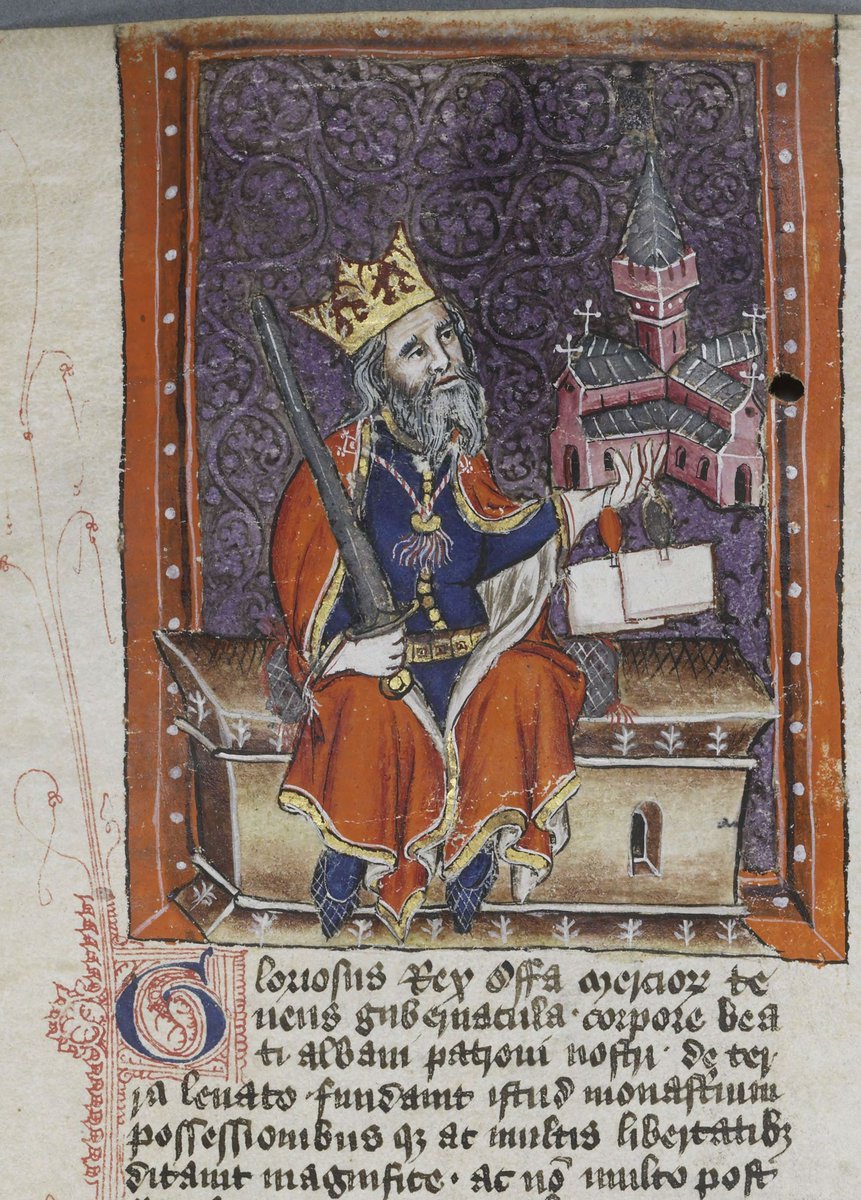 Gloriosus Rex Offa mercioꝝ te
nens gubernacula · corpore bea
ti albani patroni nostri · de ter
ra leuato · fundauit istud monasterium
possessionibus qꝫ ac multis libertatibꝫ
ditauit magnifice · ac nō multo post